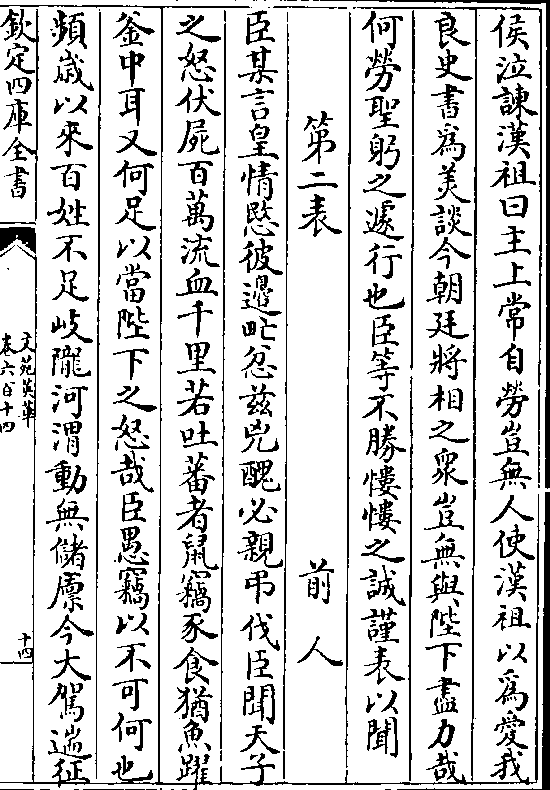 侯泣諫漢祖曰主上常自勞豈無人使漢祖以為愛我
良史書為美談今朝廷將相之衆豈無與陛下盡力哉
何勞聖躬之遽行也臣等不勝慺慺之誠謹表以聞
第二表 前人
臣某言皇情愍彼邊甿忿兹兇醜必親弔伐臣聞天子
之怒伏屍百萬流血千里若吐蕃者鼠竊豕食猶魚躍
釜中耳又何足以當陛下之怒哉臣愚竊以不可何也
頻歲以來百姓不足岐隴河渭動無儲廪今大駕遄征
欽定四庫全書
文苑英華
卷六百十四
十四